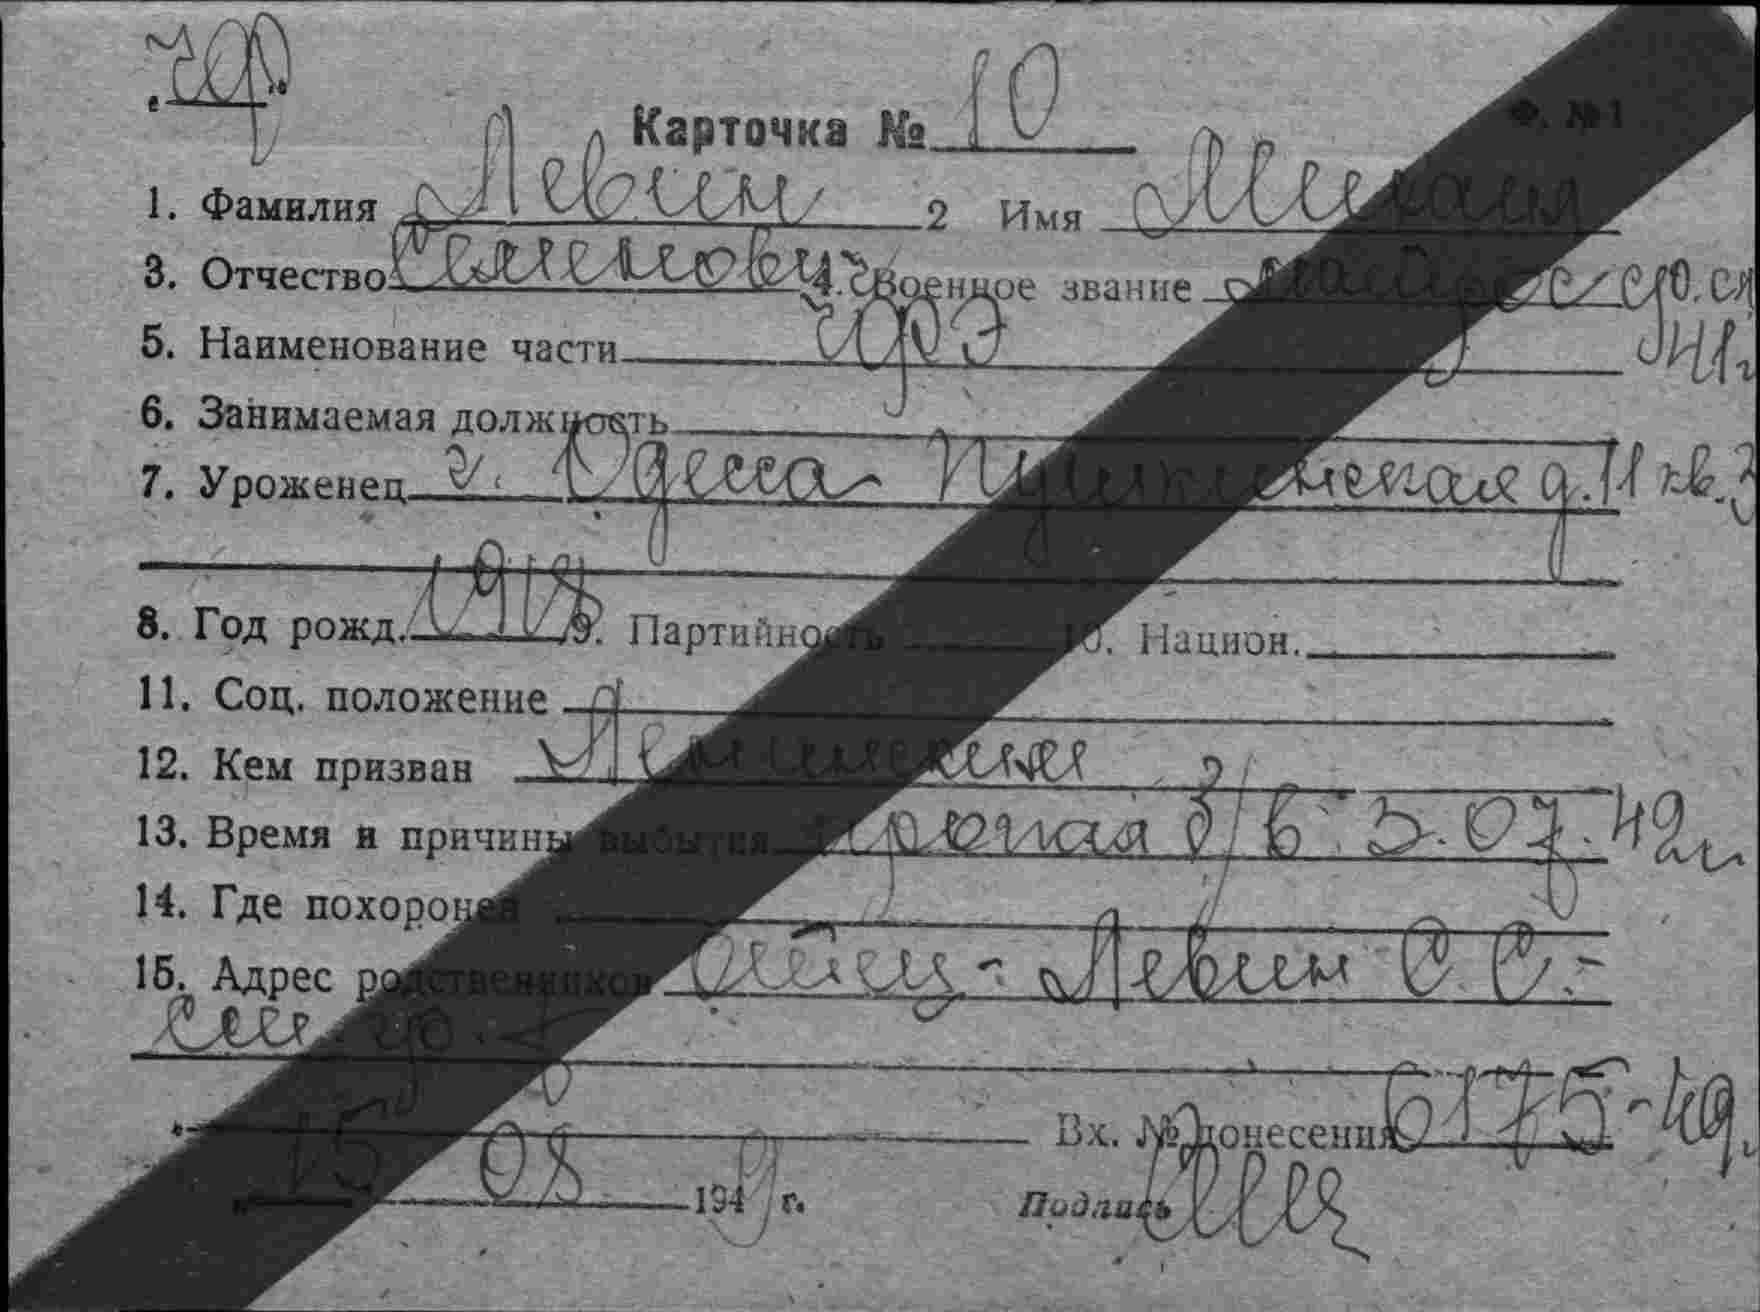 чф
Ф. №1
Карточка № 10
1. Фамилия Левин 2 Имя Михаил
3. Отчество Семенович 4. Военное звание матрос ср. сл
5. Наименование части чф 41г
6. Занимаемая должность
7. Уроженец г. Одесса Пушкинская д. 11 кв. 3
8. Год рожд. 1918 9. Партийность 10. Национ.
11. Соц. положение
12. Кем призван Ленинским
13. Время и причины выбытия пропал б/в 3.07.42г
14. Где похоронен
15. Адрес родственников Отец - Левин С. С. -
Вх. № донесения 6175-49.
15 08 1949 г. Подпись